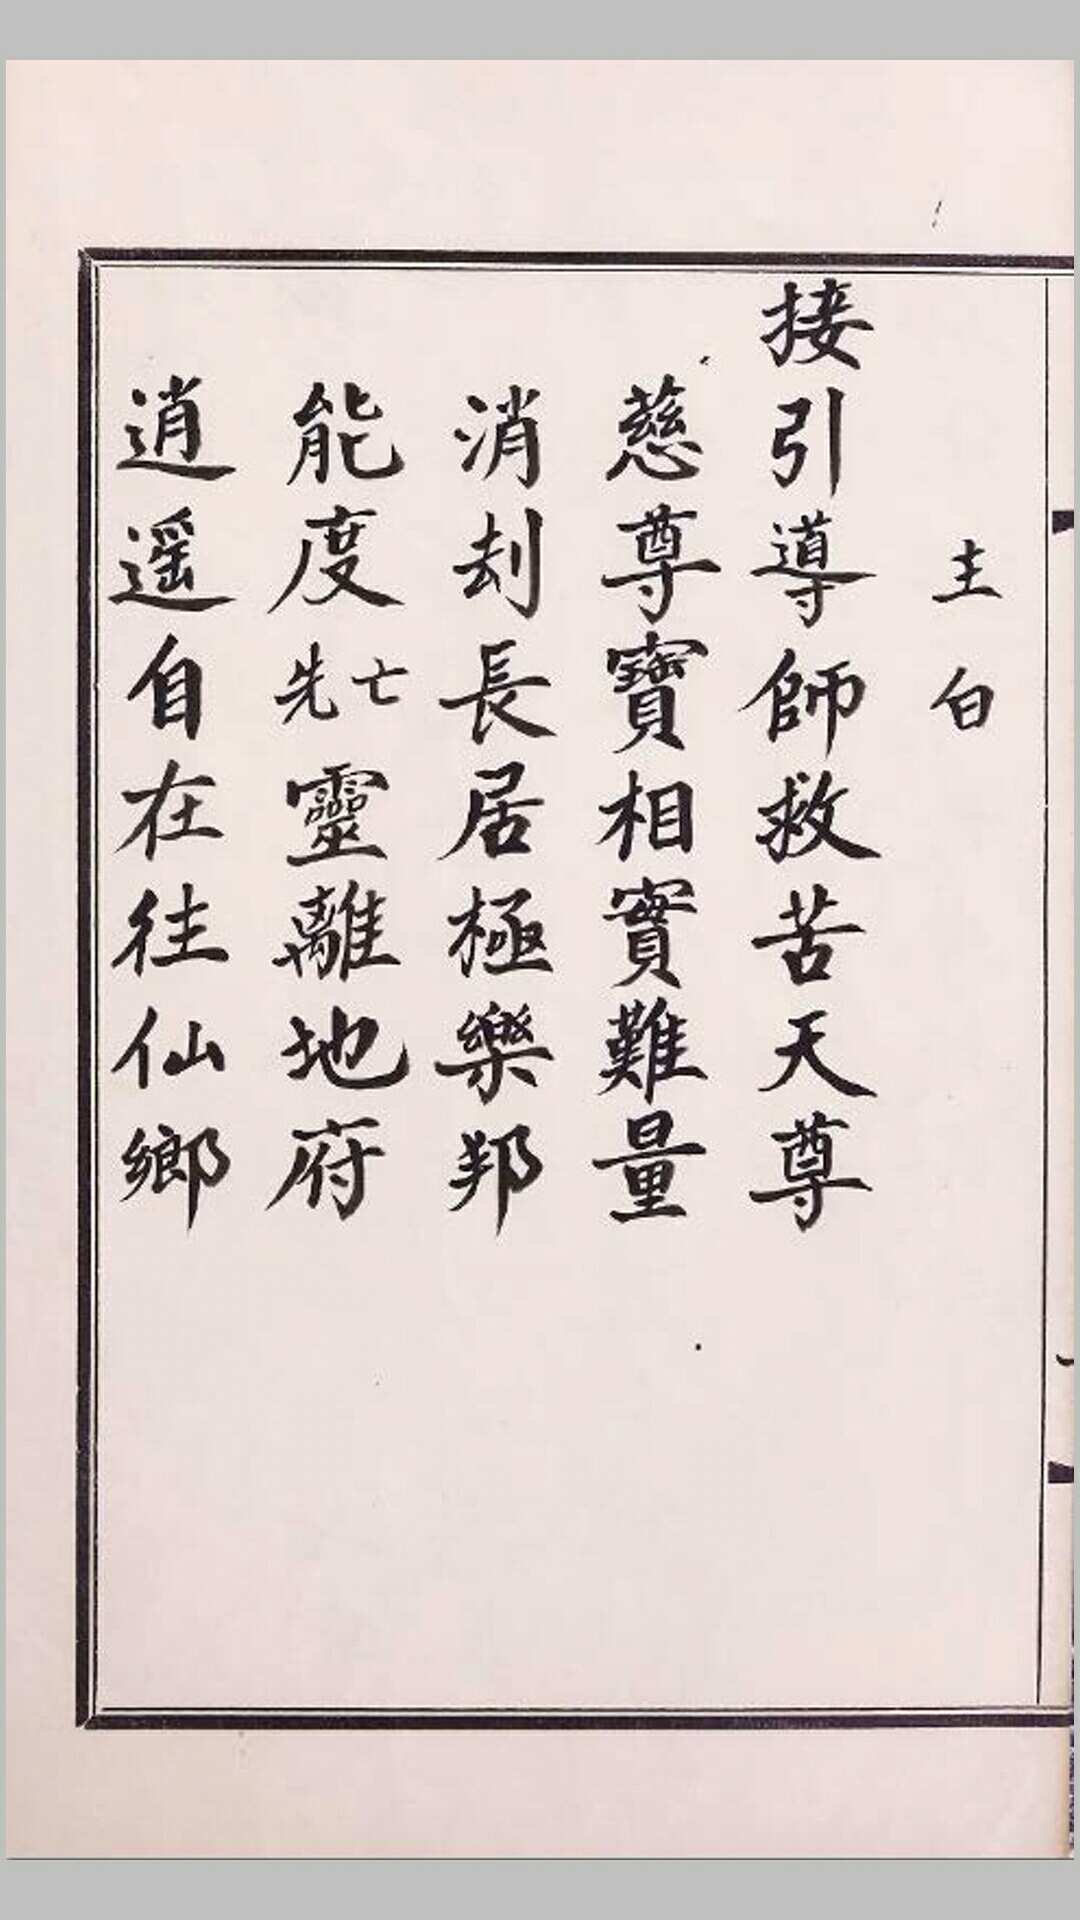 主白
接引導師救苦天尊
慈尊寶相實難量
消刦長居極樂邦
能度亡先靈離地府
逍遥自在往仙鄉